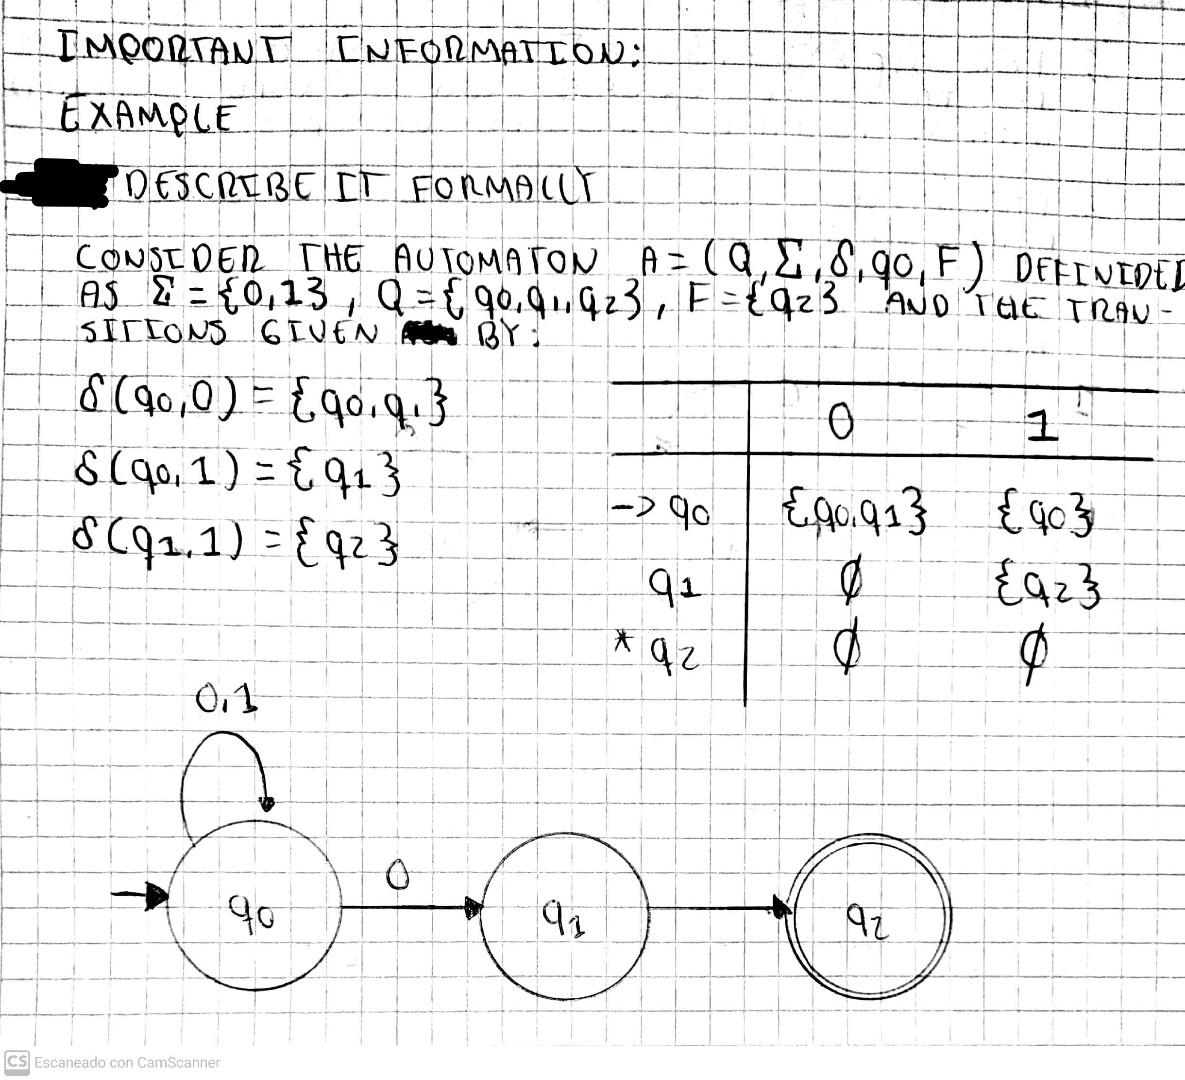 IMPORTANT INFORMATION:
EXAMPLE
DESCRIBE IT FORMALLY
CONSIDER THE AUTOMATON A = (Q, Σ, δ, q0, F) DEFINIDED
AS Σ = {0,1}, Q = {q0, q1, q2}, F = {q2} AND THE TRAN-
SITIONS GIVEN BY:
δ(q0,0) = {q0,q1}
δ(q0,1) = {q1}
δ(q1,1) = {q2}
0 1
-> q0 {q0,q1} {q0}
q1 ∅ {q2}
* q2 ∅ ∅
0,1
0
q0 q1 q2
CS Escaneado con CamScanner